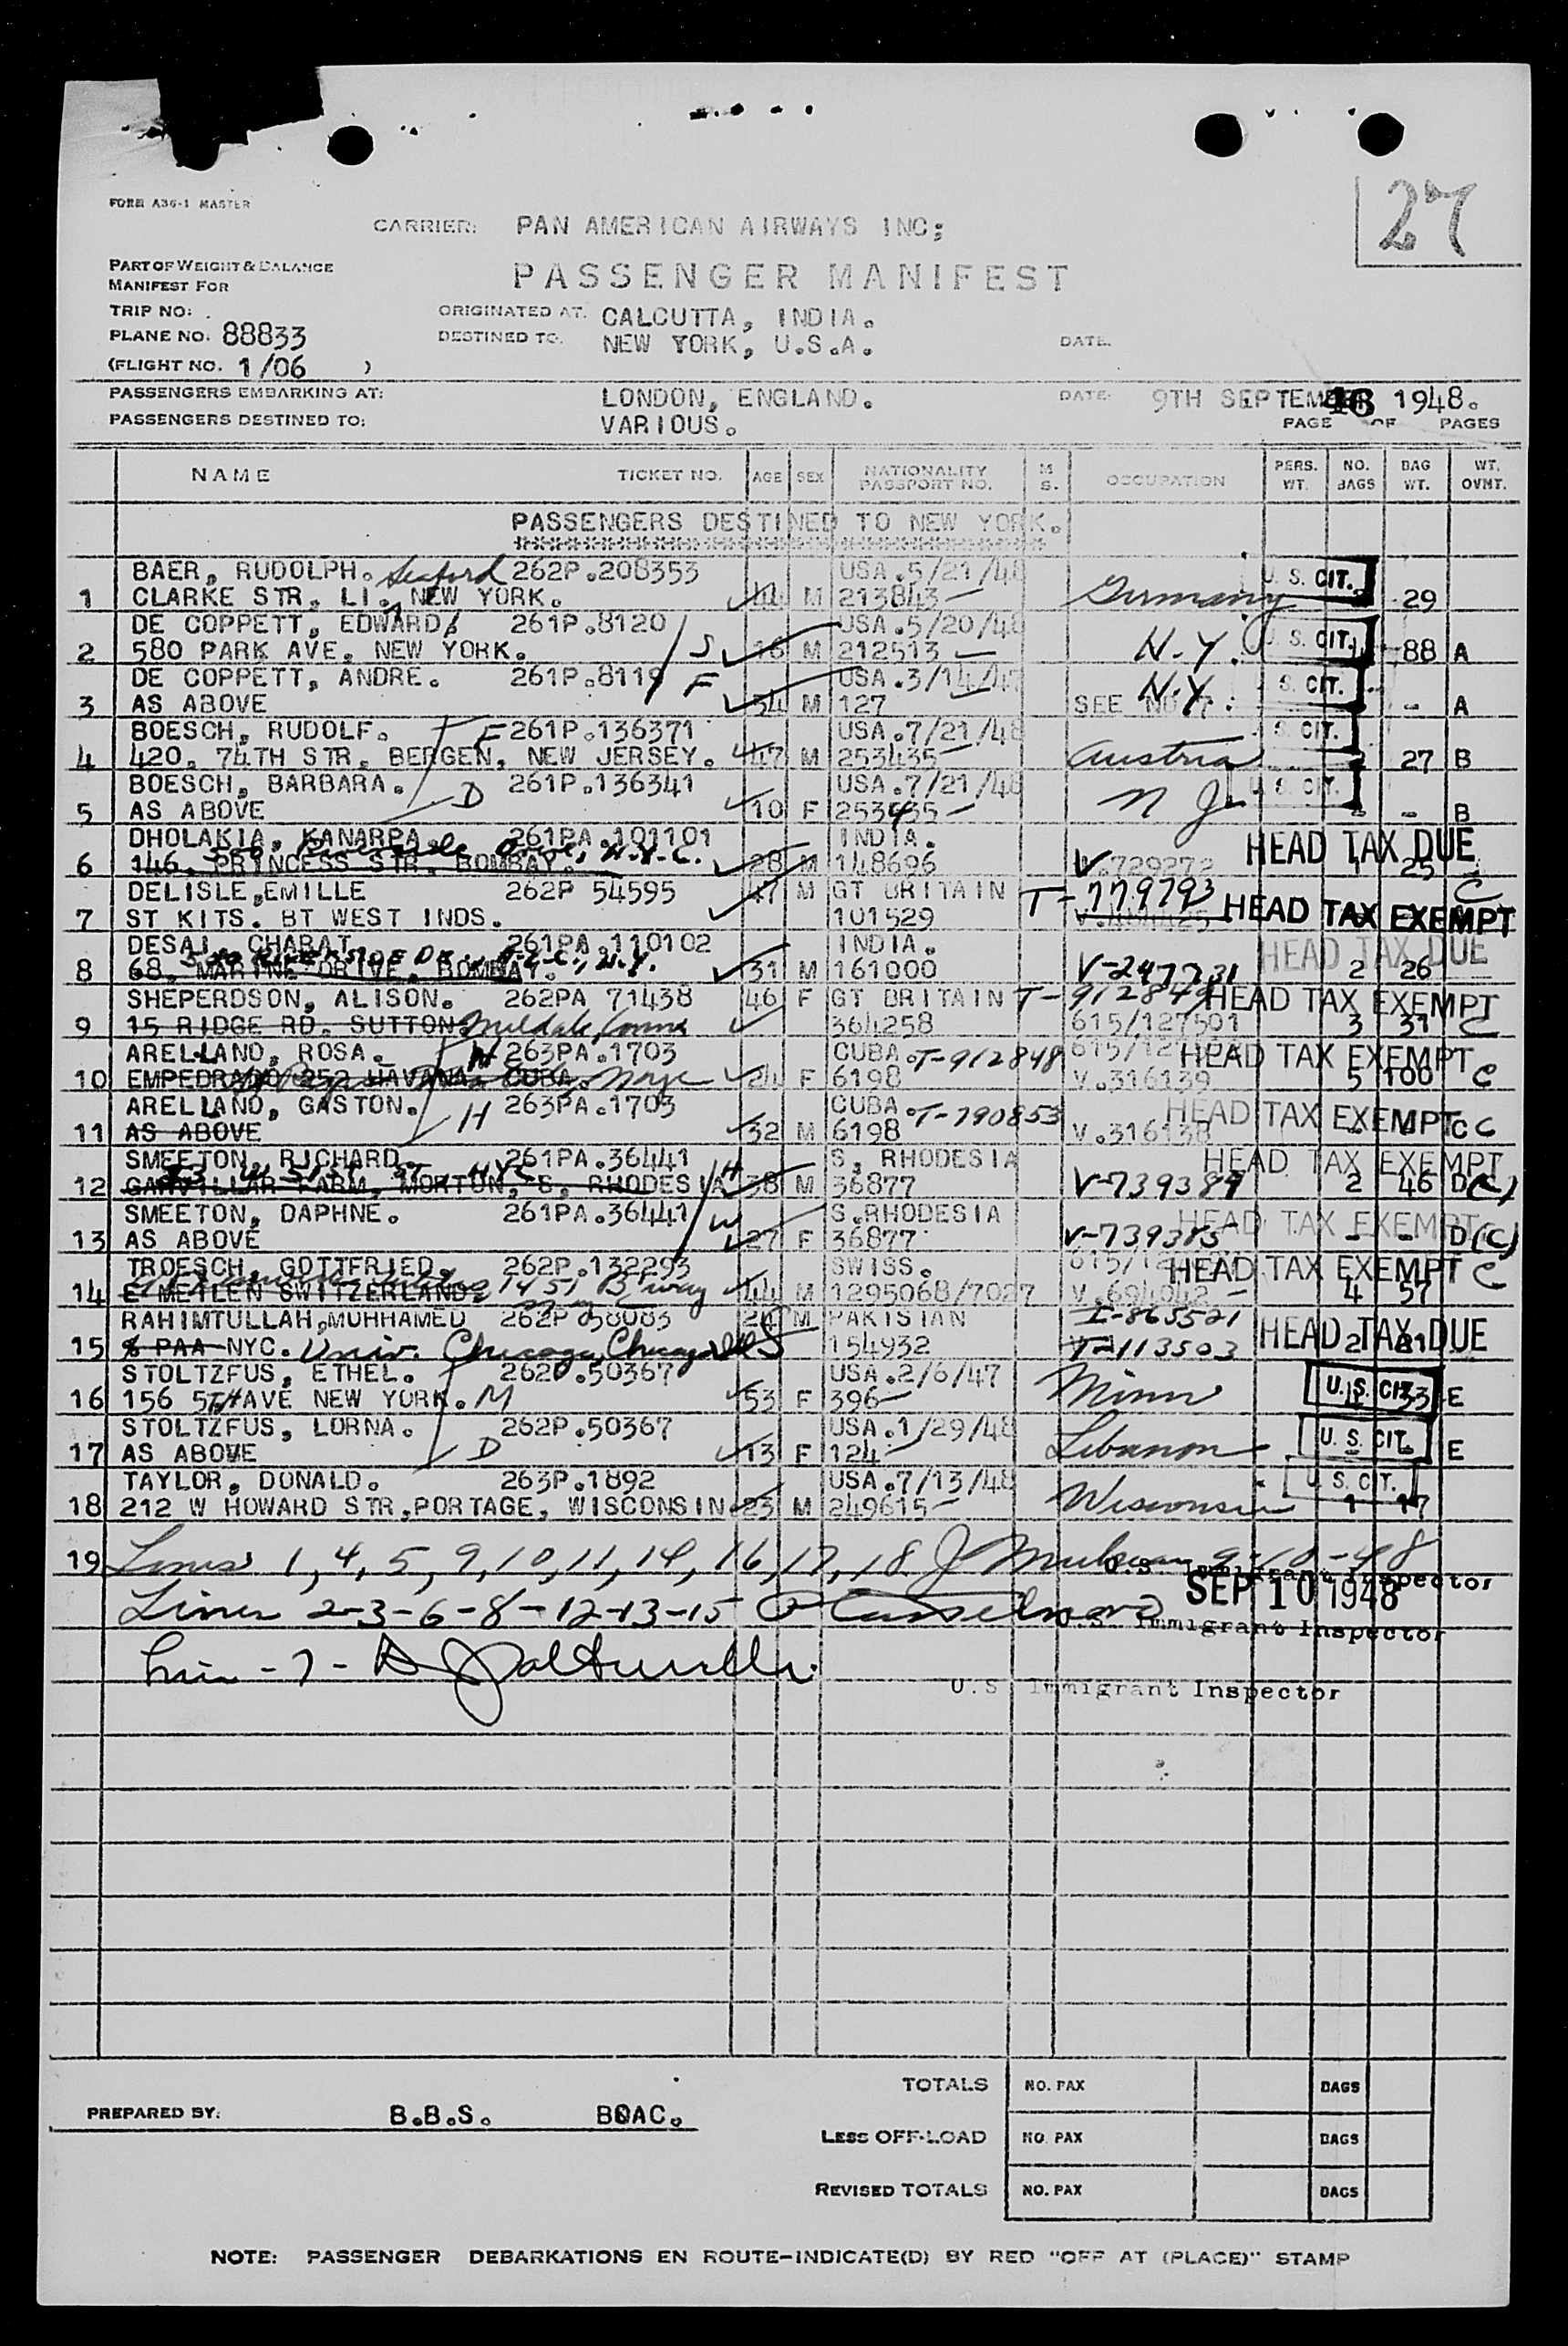 27
FORM A36-1 MASTER
CARRIER: PAN AMERICAN AIRWAYS INC;
PART OF WEIGHT & BALANCE
MANIFEST FOR
PASSENGER MANIFEST
TRIP NO: .
ORIGINATED AT. CALCUTTA, INDIA.
PLANE NO. 88833
DESTINED TO. NEW YORK, U.S.A.
DATE.
(FLIGHT NO. 1/06 )
PASSENGERS EMBARKING AT: LONDON, ENGLAND. DATE. 9TH SEPTEMBER 1948.
PASSENGERS DESTINED TO: VARIOUS. PAGE OF PAGES
NAME TICKET NO. AGE SEX NATIONALITY PASSPORT NO. M S. OCCUPATION PERS. WT. NO. BAGS BAG WT. WT. OVMT.
PASSENGERS DESTINED TO NEW YORK.
BAER, RUDOLPH. Seaford 262P.208353 USA.5/21/48 U.S. CIT.
1 CLARKE STR. LI. NEW YORK. 44 M 213843 Germany 29
DE COPPETT, EDWARD. 261P.8120 USA.5/20/48 U.S. CIT.
2 580 PARK AVE. NEW YORK. S 16 M 212513 N.Y. 88 A
DE COPPETT, ANDRE. 261P.8119 F USA.3/14/47 S. CIT.
3 AS ABOVE 54 M 127 SEE N.Y. - A
BOESCH, RUDOLF. F 261P.136371 USA.7/21/48 S. CIT.
4 420. 74TH STR. BERGEN, NEW JERSEY. 47 M 253435 Austria 2 27 B
BOESCH, BARBARA. D 261P.136341 USA.7/21/48 U.S. CIT.
5 AS ABOVE 10 F 253435 N J - - B
DHOLAKIA, KANARPA. 261PA.101101 INDIA. HEAD TAX DUE
Riverside Drive, N.Y.C.
6 146. PRINCESS STR. BOMBAY. 28 M 148696 V.729272 1 25
DELISLE,EMILLE 262P 54595 47 M GT BRITAIN T-779793 C
7 ST KITS. BT WEST INDS. 101529 HEAD TAX EXEMPT
DESAI, CHARAT. 261PA.110102 INDIA. HEAD TAX DUE
RIVERSIDE DR., N.Y.C., N.Y.
8 68. MARINE DRIVE, BOMBAY. 31 M 161000 V-247231 2 26
SHEPERDSON, ALISON. 262PA 71438 46 F GT BRITAIN T-912849 HEAD TAX EXEMPT
9 15 RIDGE RD. SUTTON. Conn 364258 615/127501 3 31 C
ARELLANO, ROSA. W 263PA.1703 CUBA. T-912848 HEAD TAX EXEMPT
10 EMPEDRADO 252 HAVANA CUBA. 24 F 6198 V.316139 5 100 C
ARELLANO, GASTON. H 263PA.1703 CUBA. T-790853 HEAD TAX EXEMPT
11 AS ABOVE 32 M 6198 V.316138 - - C C
SMEETON, RICHARD. 261PA.36441 S. RHODESIA HEAD TAX EXEMPT
33 W 51ST ST. NYC
12 FARM, MORTON, S. RHODESIA H 38 M 36877 V-739384 2 46 D (C)
SMEETON, DAPHNE. 261PA.36441 W S.RHODESIA HEAD TAX EXEMPT
13 AS ABOVE 27 F 36877 V-739385 - - D (C)
TROESCH, GOTTFRIED. 262P.132293 SWISS. HEAD TAX EXEMPT C
1451 B'way
14 E MEILEN SWITZERLAND. 44 M 1295068/7027 V.694942 4 57
RAHIMTULLAH,MUHHAMED 262P 58083 24 M PAKISTAN I-865521 HEAD TAX DUE
15 % PAA NYC. Univ. Chicago, Chicago Ill S 154932 T-113503 2 81
STOLTZFUS, ETHEL. 262P.50367 USA.2/6/47 U.S. CIT.
16 156 5TH AVE NEW YORK. M 53 F 396 Minn 33 E
STOLTZFUS, LORNA. 262P.50367 USA.1/29/48 U.S. CIT.
17 AS ABOVE D 13 F 124 Lebanon - - E
TAYLOR, DONALD. 263P.1892 USA.7/13/48 U.S. CIT.
18 212 W HOWARD STR,PORTAGE, WISCONSIN 23 M 249615 Wisconsin 1 17
19 Lines 1, 4, 5, 9, 10, 11, 14, 16, 17, 18 9-10-48
U.S. Immigrant Inspector
SEP 10 1948
Lines 2-3-6-8-12-13-15
U.S. Immigrant Inspector
Line - 7 -
U.S. Immigrant Inspector
TOTALS NO. PAX BAGS
PREPARED BY: B.B.S. BOAC.
LESS OFF-LOAD NO. PAX BAGS
REVISED TOTALS NO. PAX BAGS
NOTE: PASSENGER DEBARKATIONS EN ROUTE-INDICATE(D) BY RED "OFF AT (PLACE)" STAMP